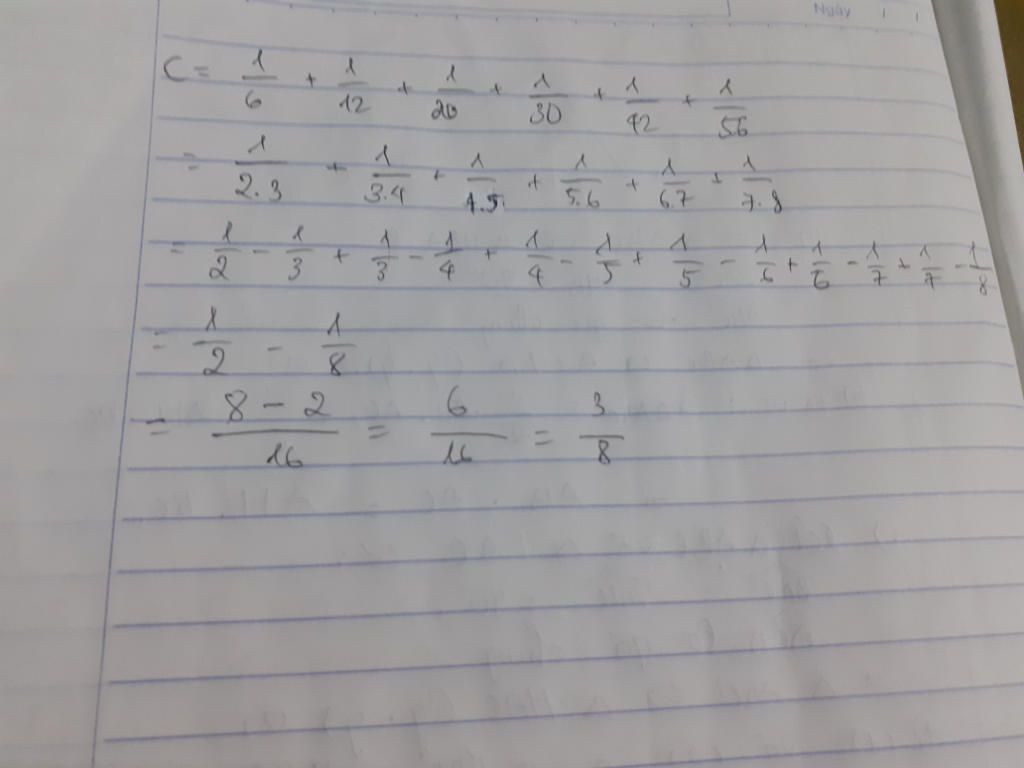 Ngày / /
C = 1/6 + 1/12 + 1/20 + 1/30 + 1/42 + 1/56
= 1/2.3 + 1/3.4 + 1/4.5 + 1/5.6 + 1/6.7 + 1/7.8
= 1/2 - 1/3 + 1/3 - 1/4 + 1/4 - 1/5 + 1/5 - 1/6 + 1/6 - 1/7 + 1/7 - 1/8
= 1/2 - 1/8
= 8 - 2/16 = 6/16 = 3/8